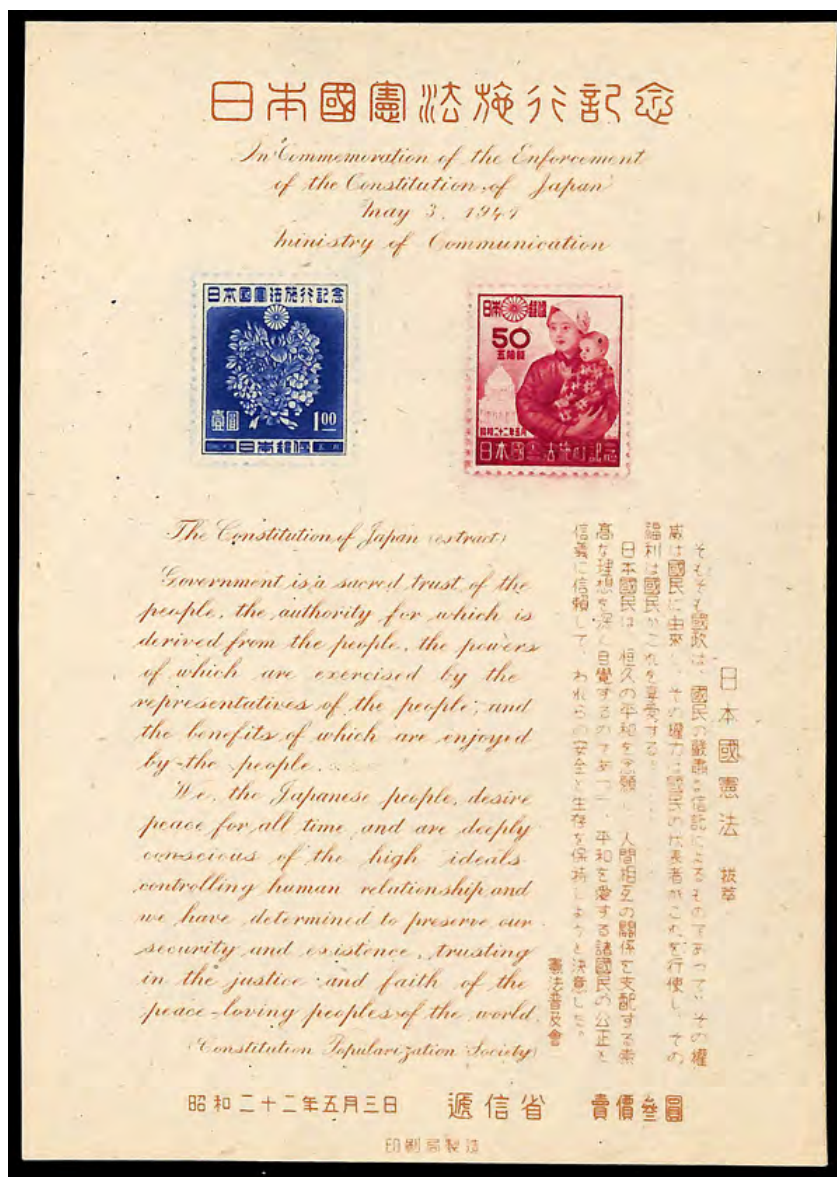 日本國憲法施行記念
In Commemoration of the Enforcement
of the Constitution of Japan
May 3, 1947
Ministry of Communication
日本國憲法施行記念
壹圓 1.00
日本郵便
日本郵便
50
五拾錢
昭和二十二年五月
日本國憲法施行記念
The Constitution of Japan (extract)
Government is a sacred trust of the
people, the authority for which is
derived from the people, the powers
of which are exercised by the
representatives of the people, and
the benefits of which are enjoyed
by the people.
We, the Japanese people, desire
peace for all time and are deeply
conscious of the high ideals
controlling human relationship and
we have determined to preserve our
security and existence, trusting
in the justice and faith of the
peace-loving peoples of the world.
(Constitution Popularization Society)
日本國憲法 拔萃
そもそも國政は、國民の嚴肅な信託によるものであつて、その權
威は國民に由來し、その權力は國民の代表者がこれを行使し、その
福利は國民がこれを享受する。
日本國民は、恒久の平和を念願し、人間相互の關係を支配する崇
高な理想を深く自覺するのであつて、平和を愛する諸國民の公正と
信義に信頼して、われらの安全と生存を保持しようと決意した。
憲法普及會
昭和二十二年五月三日 遞信省 賣價參圓
印刷局製造